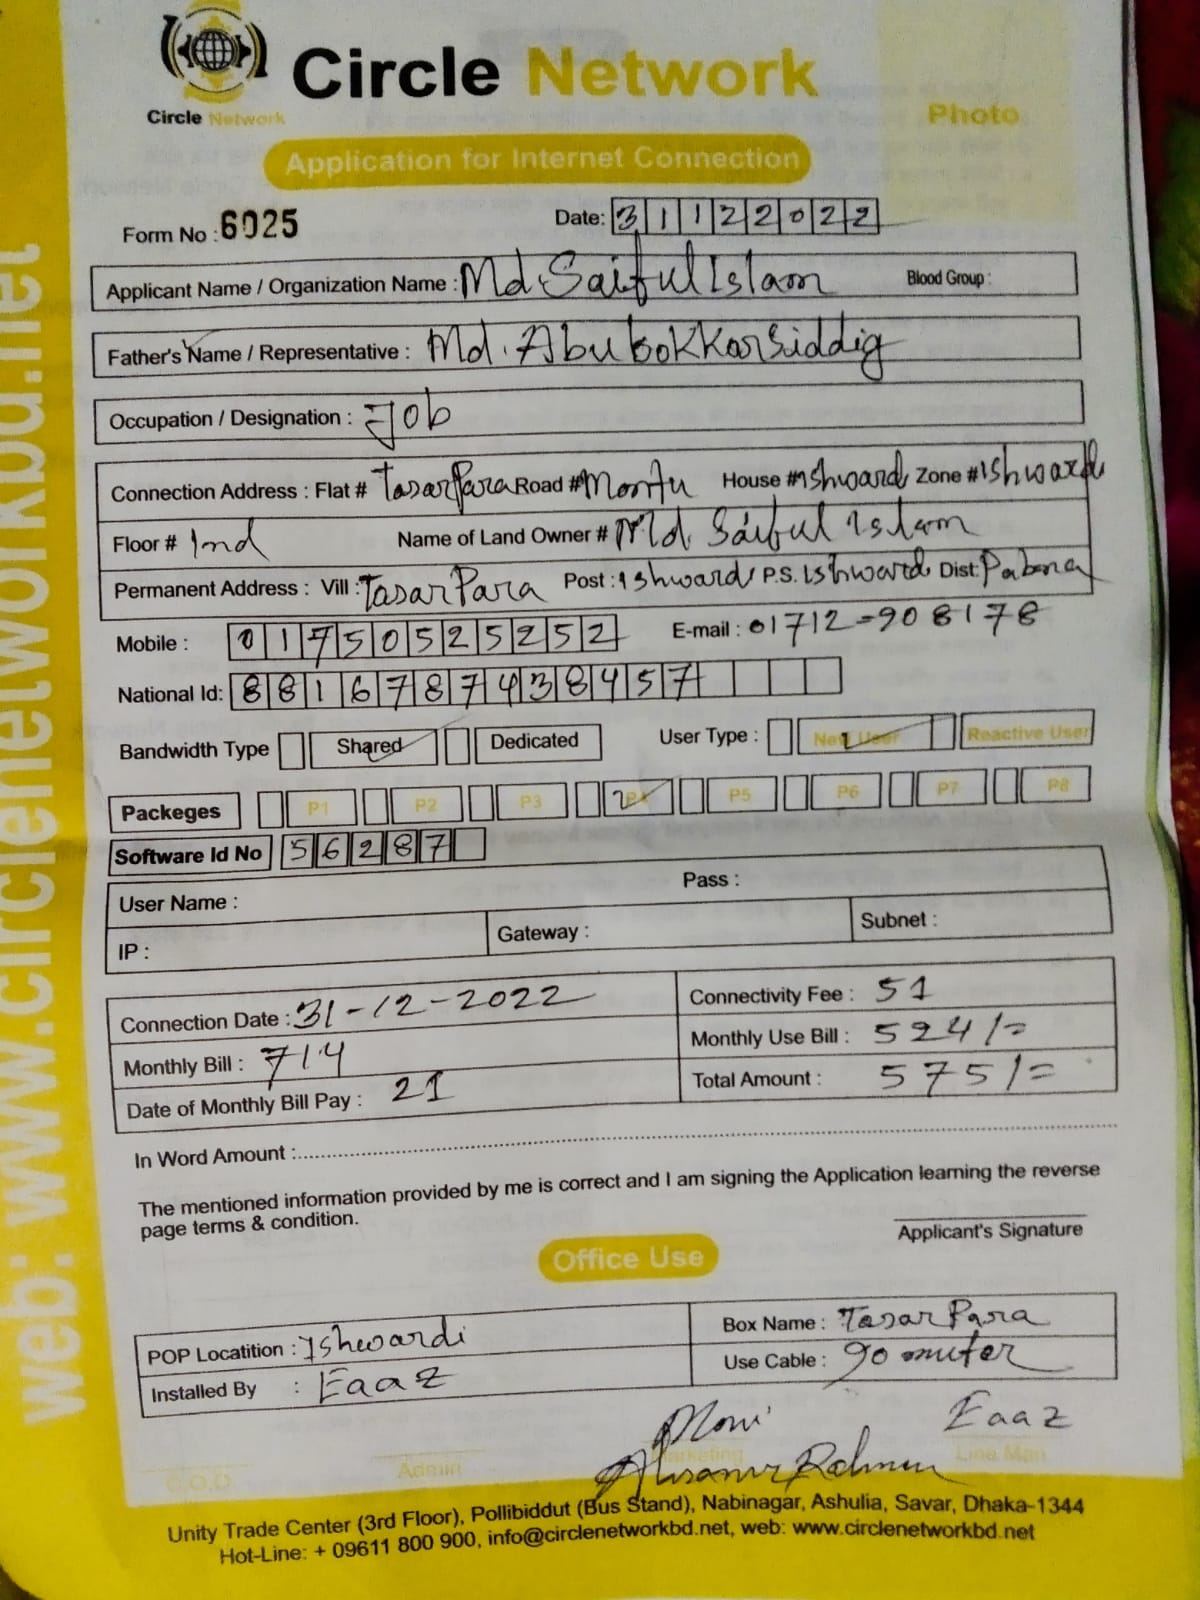 Circle Network
Circle Network
Photo
Application for Internet Connection
Form No : 6025 Date: 31122022
Applicant Name / Organization Name : Md. Saiful Islam Blood Group :
Father's Name / Representative : Md. Abu bokkar Siddig
Occupation / Designation : Job
Connection Address : Flat # Tasar Para Road # Montu House # Ishwardi Zone # Ishwardi
Floor # 1nd Name of Land Owner # Md. Saiful Islam
Permanent Address : Vill : Tasar Para Post : Ishwardi P.S. Ishwardi Dist: Pabna
Mobile : 01750525252 E-mail : 01712-908178
National Id: 8816787438457
Bandwidth Type Shared Dedicated User Type : New User Reactive User
Packeges P1 P2 P3 P4 P5 P6 P7 P8
Software Id No 56287
User Name : Pass :
IP : Gateway : Subnet :
Connection Date : 31-12-2022 Connectivity Fee : 51
Monthly Bill : 714 Monthly Use Bill : 524/=
Date of Monthly Bill Pay : 21 Total Amount : 575/=
In Word Amount :
The mentioned information provided by me is correct and I am signing the Application learning the reverse
page terms & condition.
Applicant's Signature
Office Use
POP Locatition : Ishwardi Box Name : Tasar Para
Installed By : Eaaz Use Cable : 90 miter
Moni Eaaz
Ahsanur Rahman
C.O.O Admin Marketing Line Man
Unity Trade Center (3rd Floor), Pollibiddut (Bus Stand), Nabinagar, Ashulia, Savar, Dhaka-1344
Hot-Line: + 09611 800 900, info@circlenetworkbd.net, web: www.circlenetworkbd.net
web: www.circlenetworkbd.net